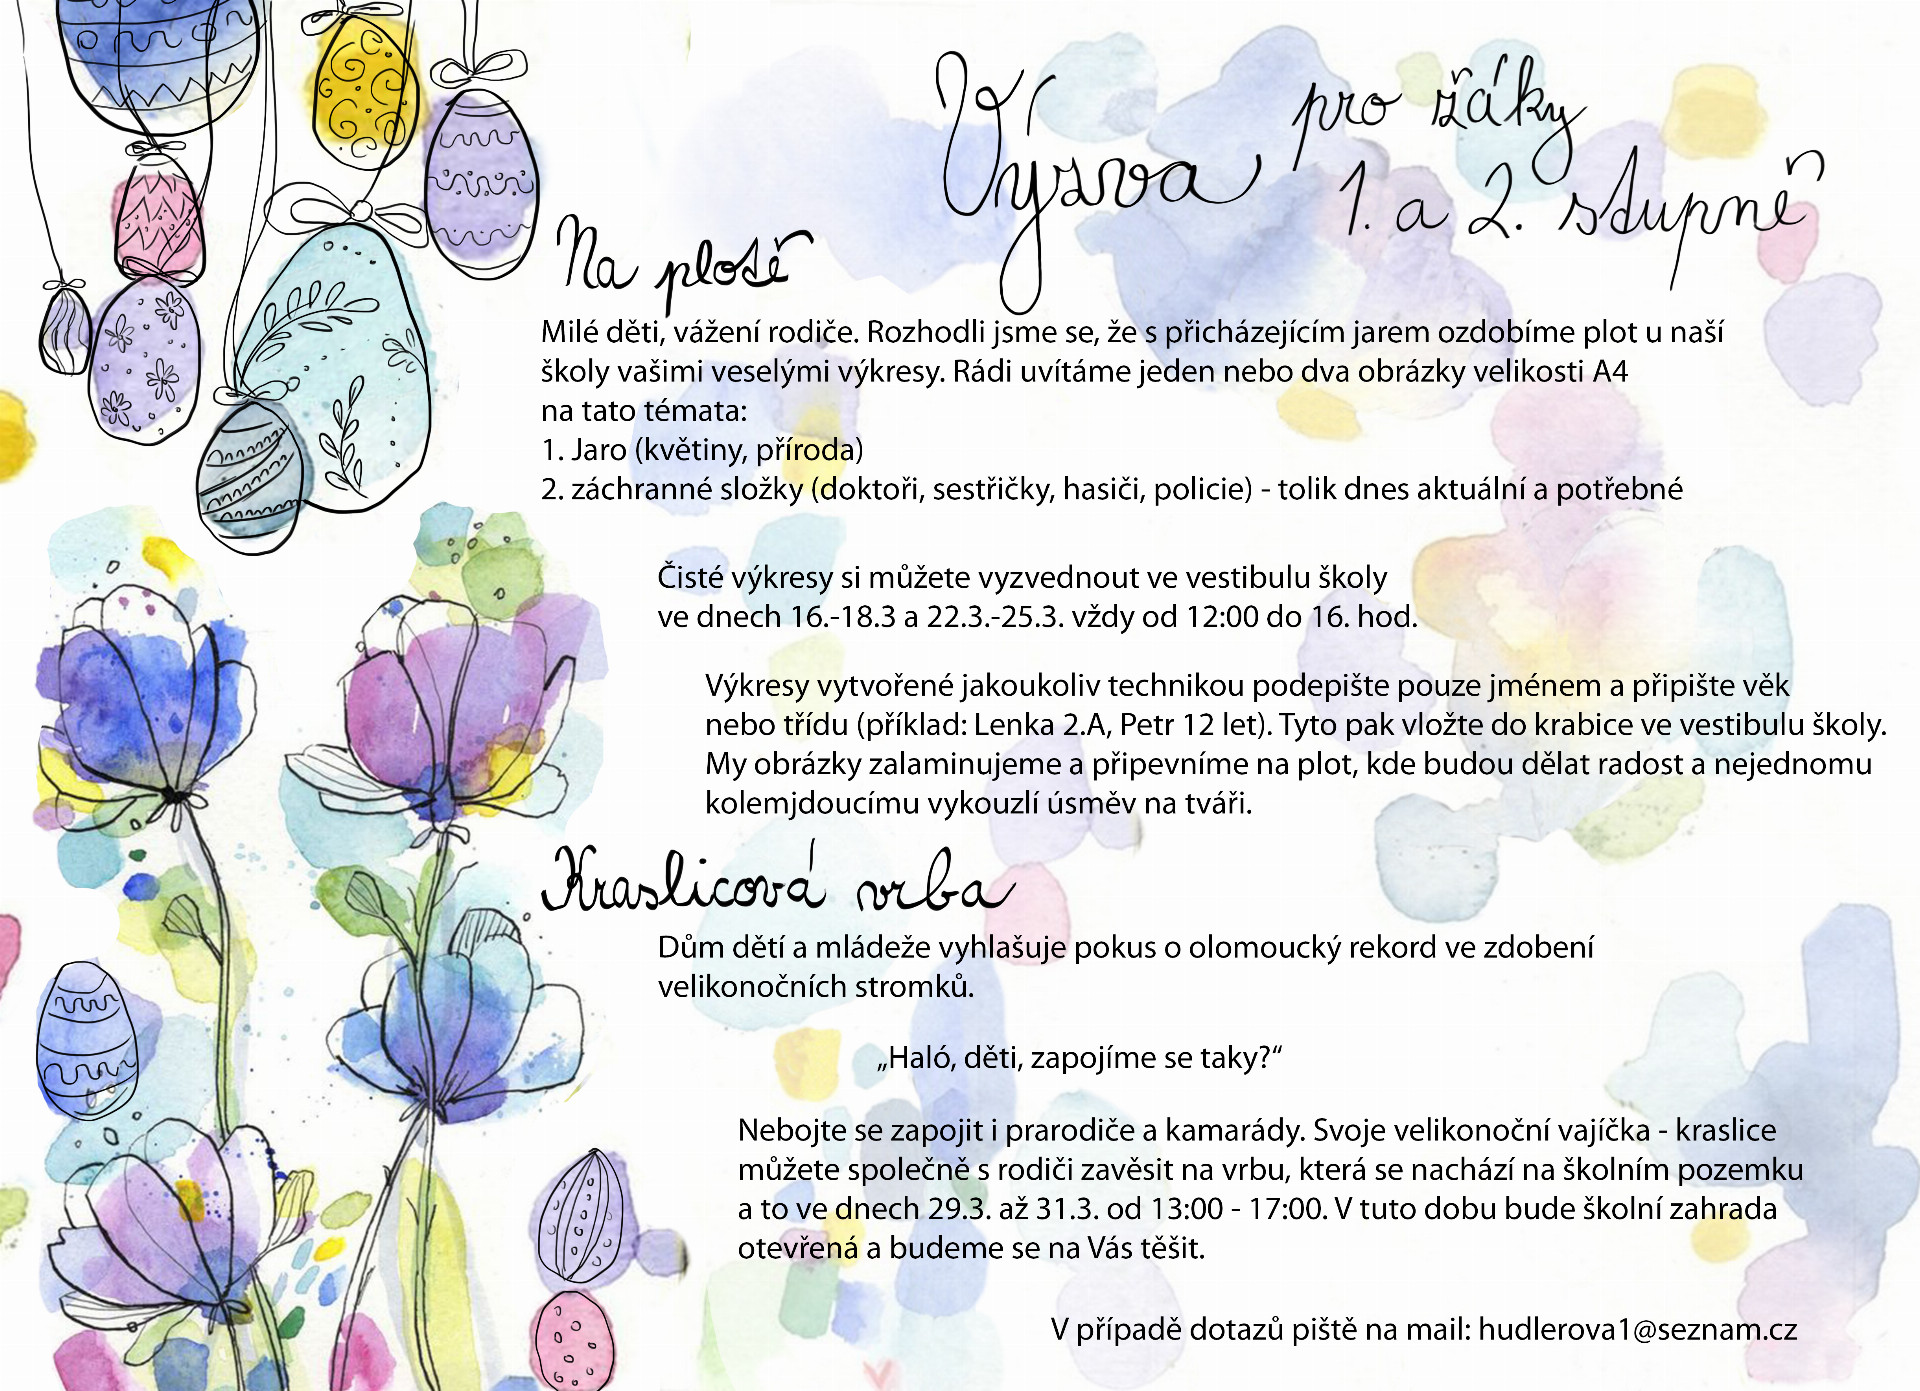 Výzva pro žáky
1. a 2. stupně
Na plotě
Milé děti, vážení rodiče. Rozhodli jsme se, že s přicházejícím jarem ozdobíme plot u naší
školy vašimi veselými výkresy. Rádi uvítáme jeden nebo dva obrázky velikosti A4
na tato témata:
1. Jaro (květiny, příroda)
2. záchranné složky (doktoři, sestřičky, hasiči, policie) - tolik dnes aktuální a potřebné
Čisté výkresy si můžete vyzvednout ve vestibulu školy
ve dnech 16.-18.3 a 22.3.-25.3. vždy od 12:00 do 16. hod.
Výkresy vytvořené jakoukoliv technikou podepište pouze jménem a připište věk
nebo třídu (příklad: Lenka 2.A, Petr 12 let). Tyto pak vložte do krabice ve vestibulu školy.
My obrázky zalaminujeme a připevníme na plot, kde budou dělat radost a nejednomu
kolemjdoucímu vykouzlí úsměv na tváři.
Kraslicová vrba
Dům dětí a mládeže vyhlašuje pokus o olomoucký rekord ve zdobení
velikonočních stromků.
„Haló, děti, zapojíme se taky?“
Nebojte se zapojit i prarodiče a kamarády. Svoje velikonoční vajíčka - kraslice
můžete společně s rodiči zavěsit na vrbu, která se nachází na školním pozemku
a to ve dnech 29.3. až 31.3. od 13:00 - 17:00. V tuto dobu bude školní zahrada
otevřená a budeme se na Vás těšit.
V případě dotazů piště na mail: hudlerova1@seznam.cz